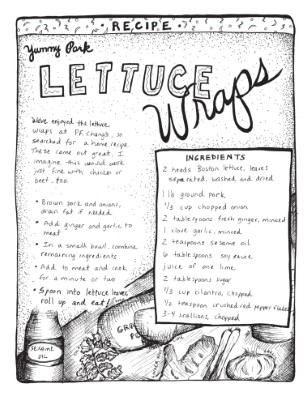 RECIPE
Yummy Pork
LETTUCE
Wraps
We've enjoyed the lettuce
wraps at P.F. Chang's, so
searched for a home recipe.
These came out great. I
imagine this would work
just fine with chicken or
beef, too.
• Brown pork and onions,
drain fat if needed
• Add ginger and garlic to
meat
• In a small bowl, combine
remaining ingredients
• Add to meat and cook
for a minute or two
• Spoon into lettuce leaves,
roll up and eat!
INGREDIENTS
2 heads Boston lettuce, leaves
separated, washed and dried
1 lb ground pork
1/3 cup chopped onion
2 tablespoons fresh ginger, minced
1 clove garlic, minced
2 teaspoons sesame oil
6 tablespoons soy sauce
juice of one lime
2 tablespoons sugar
1/3 cup cilantro, chopped
1/2 teaspoon crushed red pepper flakes
3-4 scallions, chopped
SESAME
OIL